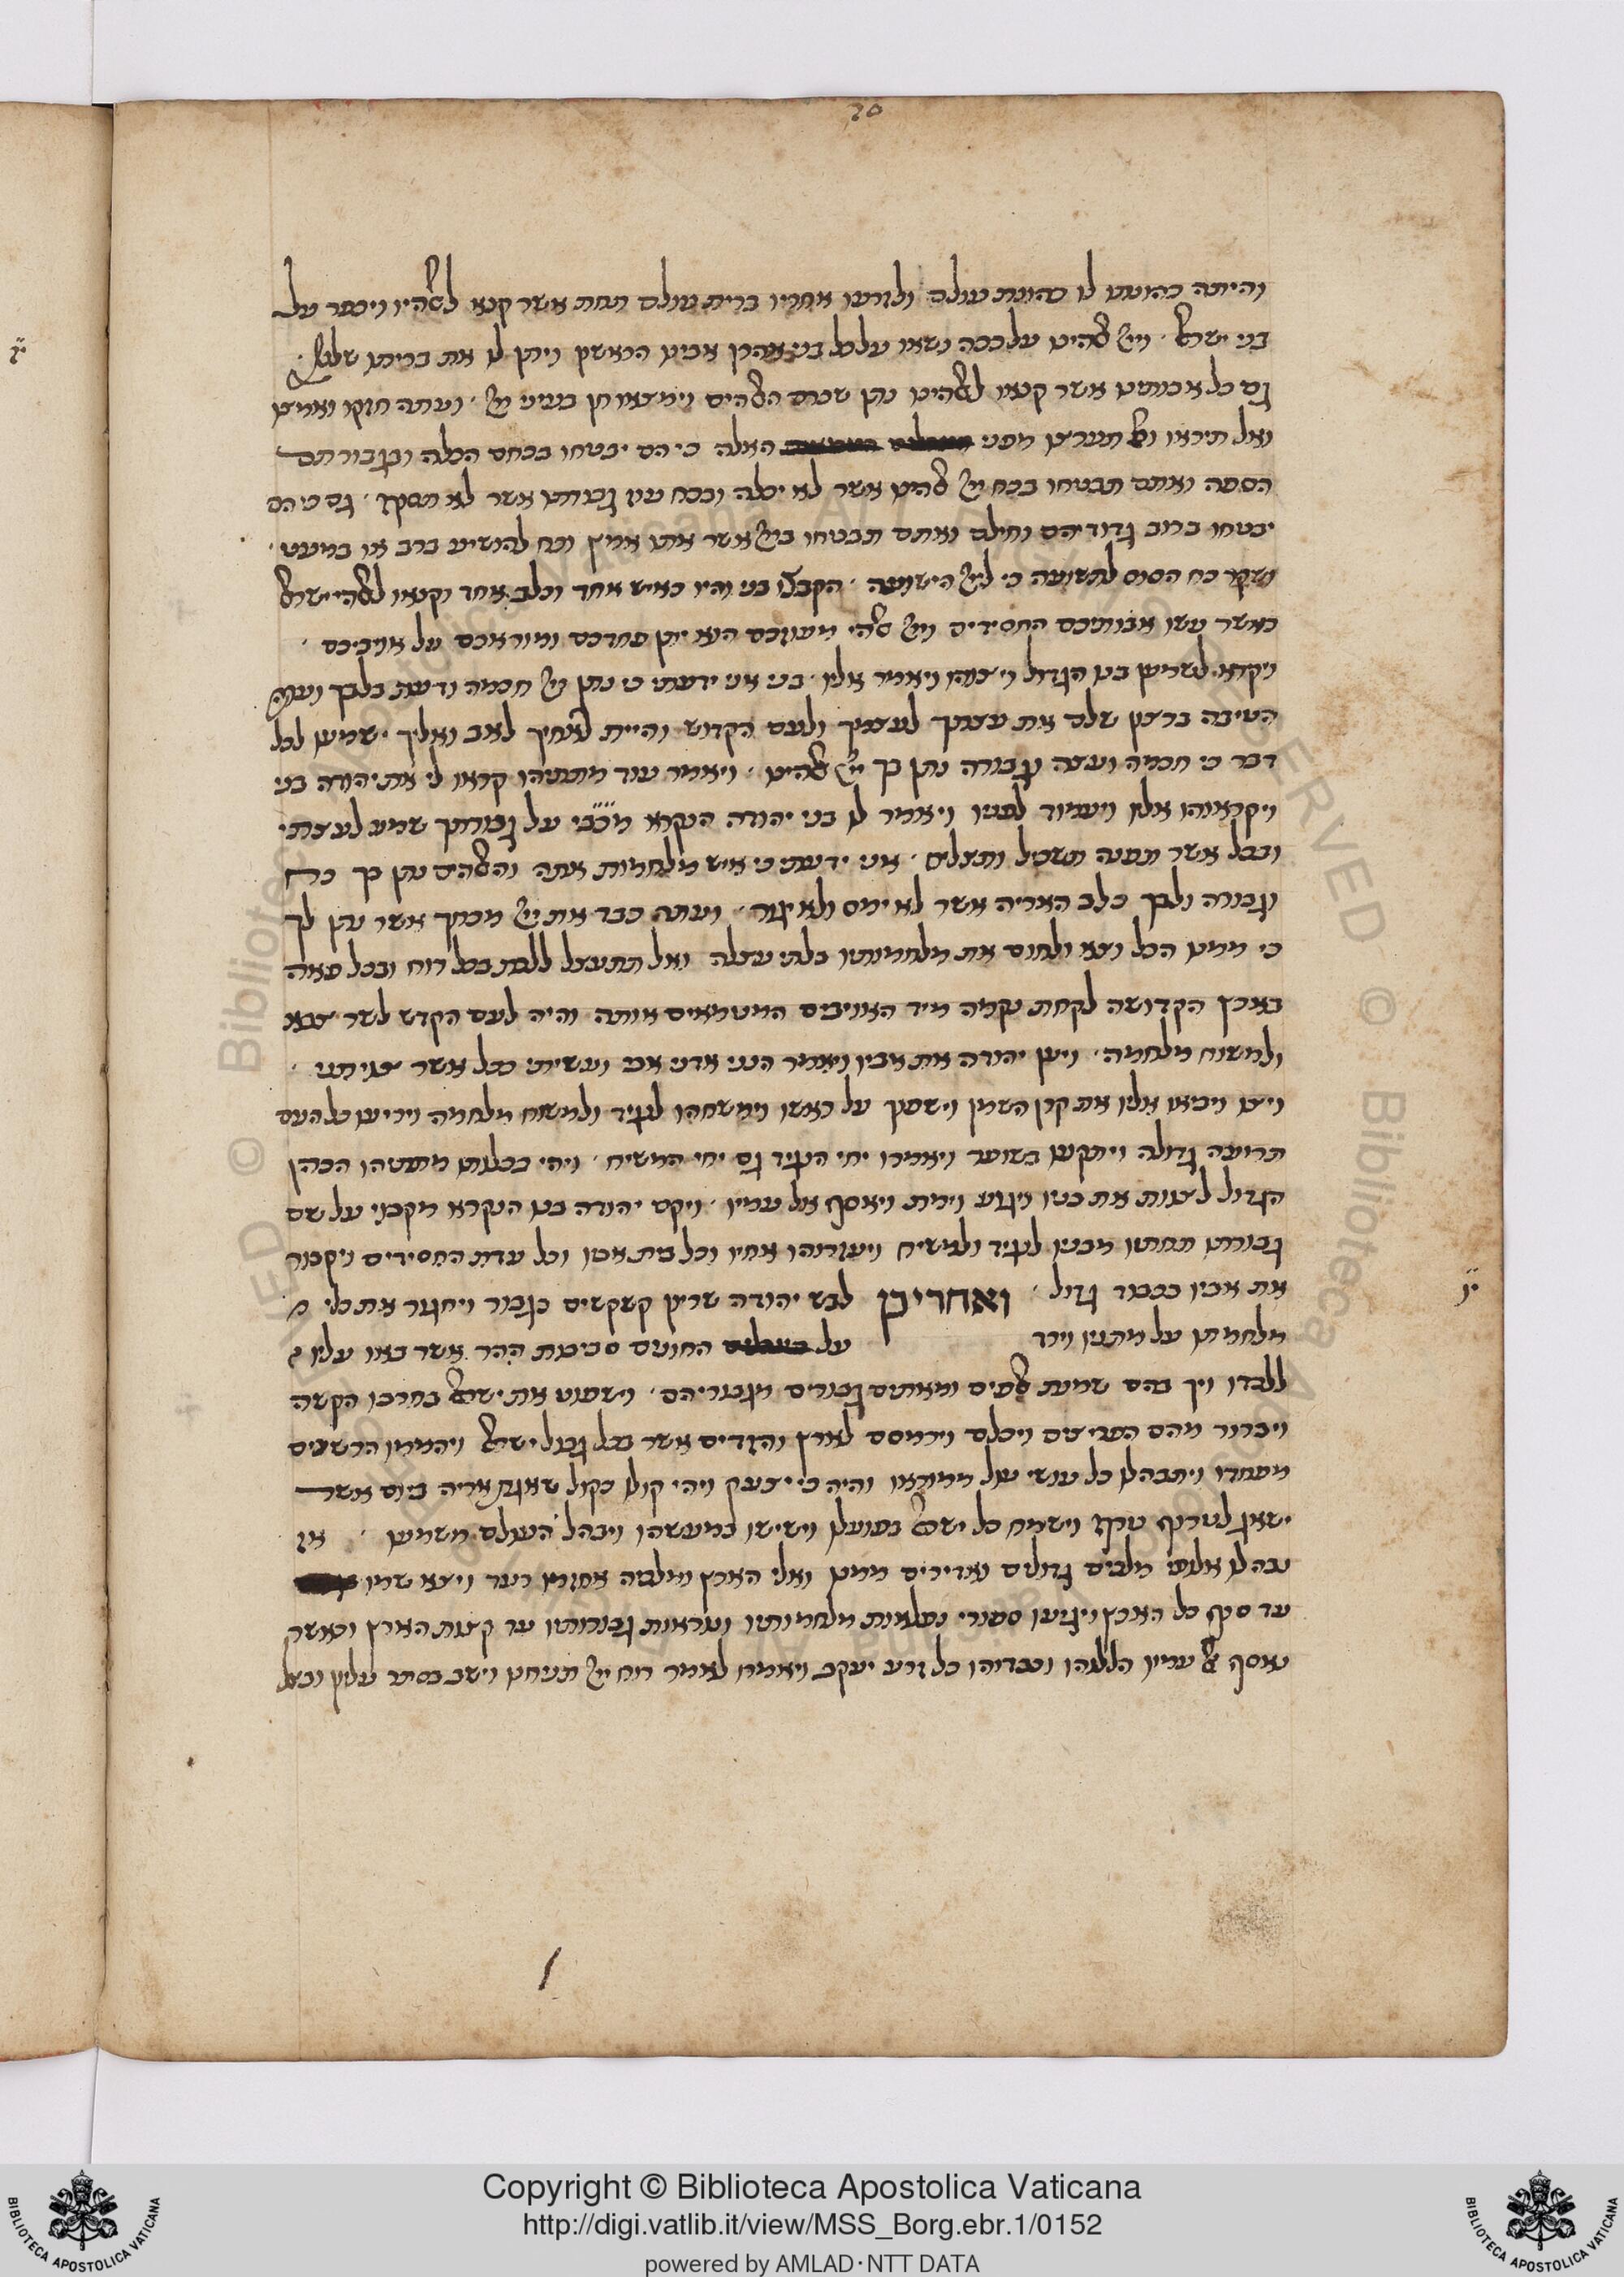 והיתה כהונתו לו כהונת עולם ולזרעו אחריו ברית עולם תחת אשר קנא לאלהיו ויכפר על
בני ישראל ׳ וייי אלהינו על ככה נשאו על כל בני אהרן אבינו הראשון ויתן לו את בריתו שלום ׳
גם כל אבותינו אשר קנאו לאלהינו נתן שכרם האלהים וימצאו חן בעיני ייי ׳ ועתה חזקו ואמצו
ואל תיראו ואל תערצו מפני האלה כי הם יבטחו בכחם הכלה ובגבורתם
הספה ואתם תבטחו בכח ייי אלהינו אשר לא יכלה ובכח עוז גבורתו אשר לא תסוף ׳ גם כי הם
יבטחו ברוב גדודיהם וחילם ואתם תבטחו בייי אשר אתו אמץ וכח להושיע ברב או במעט ׳
ושקר כח הסוס לתשועה כי לייי הישועה ׳ הקבצו בני והיו כאיש אחד וכלב אחד וקנאו לאלהי ישראל
כאשר עשו אבותיכם החסידים וייי אלהי מעוזכם הוא יתן פחדכם ומוראכם על אויביכם ׳
ויקרא לשמעון בנו הגדול ויצוהו ויאמר אליו ׳ בני אני ידעתי כי נתן ייי חכמה ודעת בלבך ועתה
היטיבה ברצון שלם את עצתך לעמך ולעם הקדוש והיית לאחיך לאב ואליך ישמעו לכל
דבר כי חכמה ועצה וגבורה נתן בך ייי אלהינו ׳ ויאמר עוד מתתיהו קראו לי את יהודה בני
ויקראוהו אליו ויעמוד לפניו ויאמר לו בני יהודה הנקרא מכבי על גבורתך שמע לעצתי
ובכל אשר תפנה תשכיל ותצליח ׳ אני ידעתי כי איש מלחמות אתה והאלהים נתן בך כח
וגבורה ולבך כלב האריה אשר לא ימס ולא יגור ׳ ועתה כבד את ייי מכחך אשר נתן לך
כי ממנו הכל וצא ולחום את מלחמותיו בלתי עצלה ואל תתעצל ללכת בכל רוח ובכל פאה
בארץ הקדושה לקחת נקמה מיד האויבים המטמאים אותה והיה לעם הקדש לשר צבא
ולמשוח מלחמה ׳ ויען יהודה את אביו ויאמר הנני אדני אבי ועשיתי ככל אשר צויתני ׳
ויצו ויביאו אליו את קרן השמן וישפוך על ראשו וימשחהו לנגיד ולמשוח מלחמה ויריעו כל העם
תרועה גדולה ויתקעו בשופר ויאמרו יחי הנגיד גם יחי המשיח ׳ ויהי ככלות מתתיהו הכהן
הגדול לצוות את בניו ויגוע וימת ויאסף אל עמיו ׳ ויקם יהודה בנו הנקרא מקבני על שם
גבורתו תחתיו מבניו לנגיד ולמשיח ויעזרוהו אחיו וכל בית אביו וכל עדת החסידים ויקברו
את אביו בכבוד גדול ׳ ואחריכן לבש יהודה שריון קשקשים כגבור ויחגור את כלי מ
מלחמתו על מתניו וירד על החונים סביבות ההר אשר באו עליו
ללכדו ויך בהם שמונת אלפים ומאתים גבורים מגבוריהם ׳ וישפוט את ישראל בחרבו הקשה
ויברור מהם הפריצים ויכלם וירמסם לארץ והזדים אשר בכל גבול ישראל ויהממו הרשעים
מפחדו ויתבהלו כל עושי עול ממוראו והיה כי יצעק ויהי קולו כקול שאגת אריה ביום אשר
ישאג לטרוף טרף וישמח כל ישראל בפועלו וישישו במעשהו ויבהל העולם משמעו ׳ אז
נבהלו אלופי מלכים גדולים ואדירים ממנו ואלי הארץ ומלכיה אחזמו רעד ויצא שמו
עד סוף כל הארץ ויגיעו ספורי נפלאות מלחמותיו ונוראות גבורותיו עד קצות הארץ וכאשר
נאסף אל עמיו הללוהו וכבדוהו כל זרע יעקב ויאמרו לאמר רוח ייי תנוחנו וישב בסתר עליון ובצל
Copyright © Biblioteca Apostolica Vaticana
http://digi.vatlib.it/view/MSS_Borg.ebr.1/0152
powered by AMLAD·NTT DATA